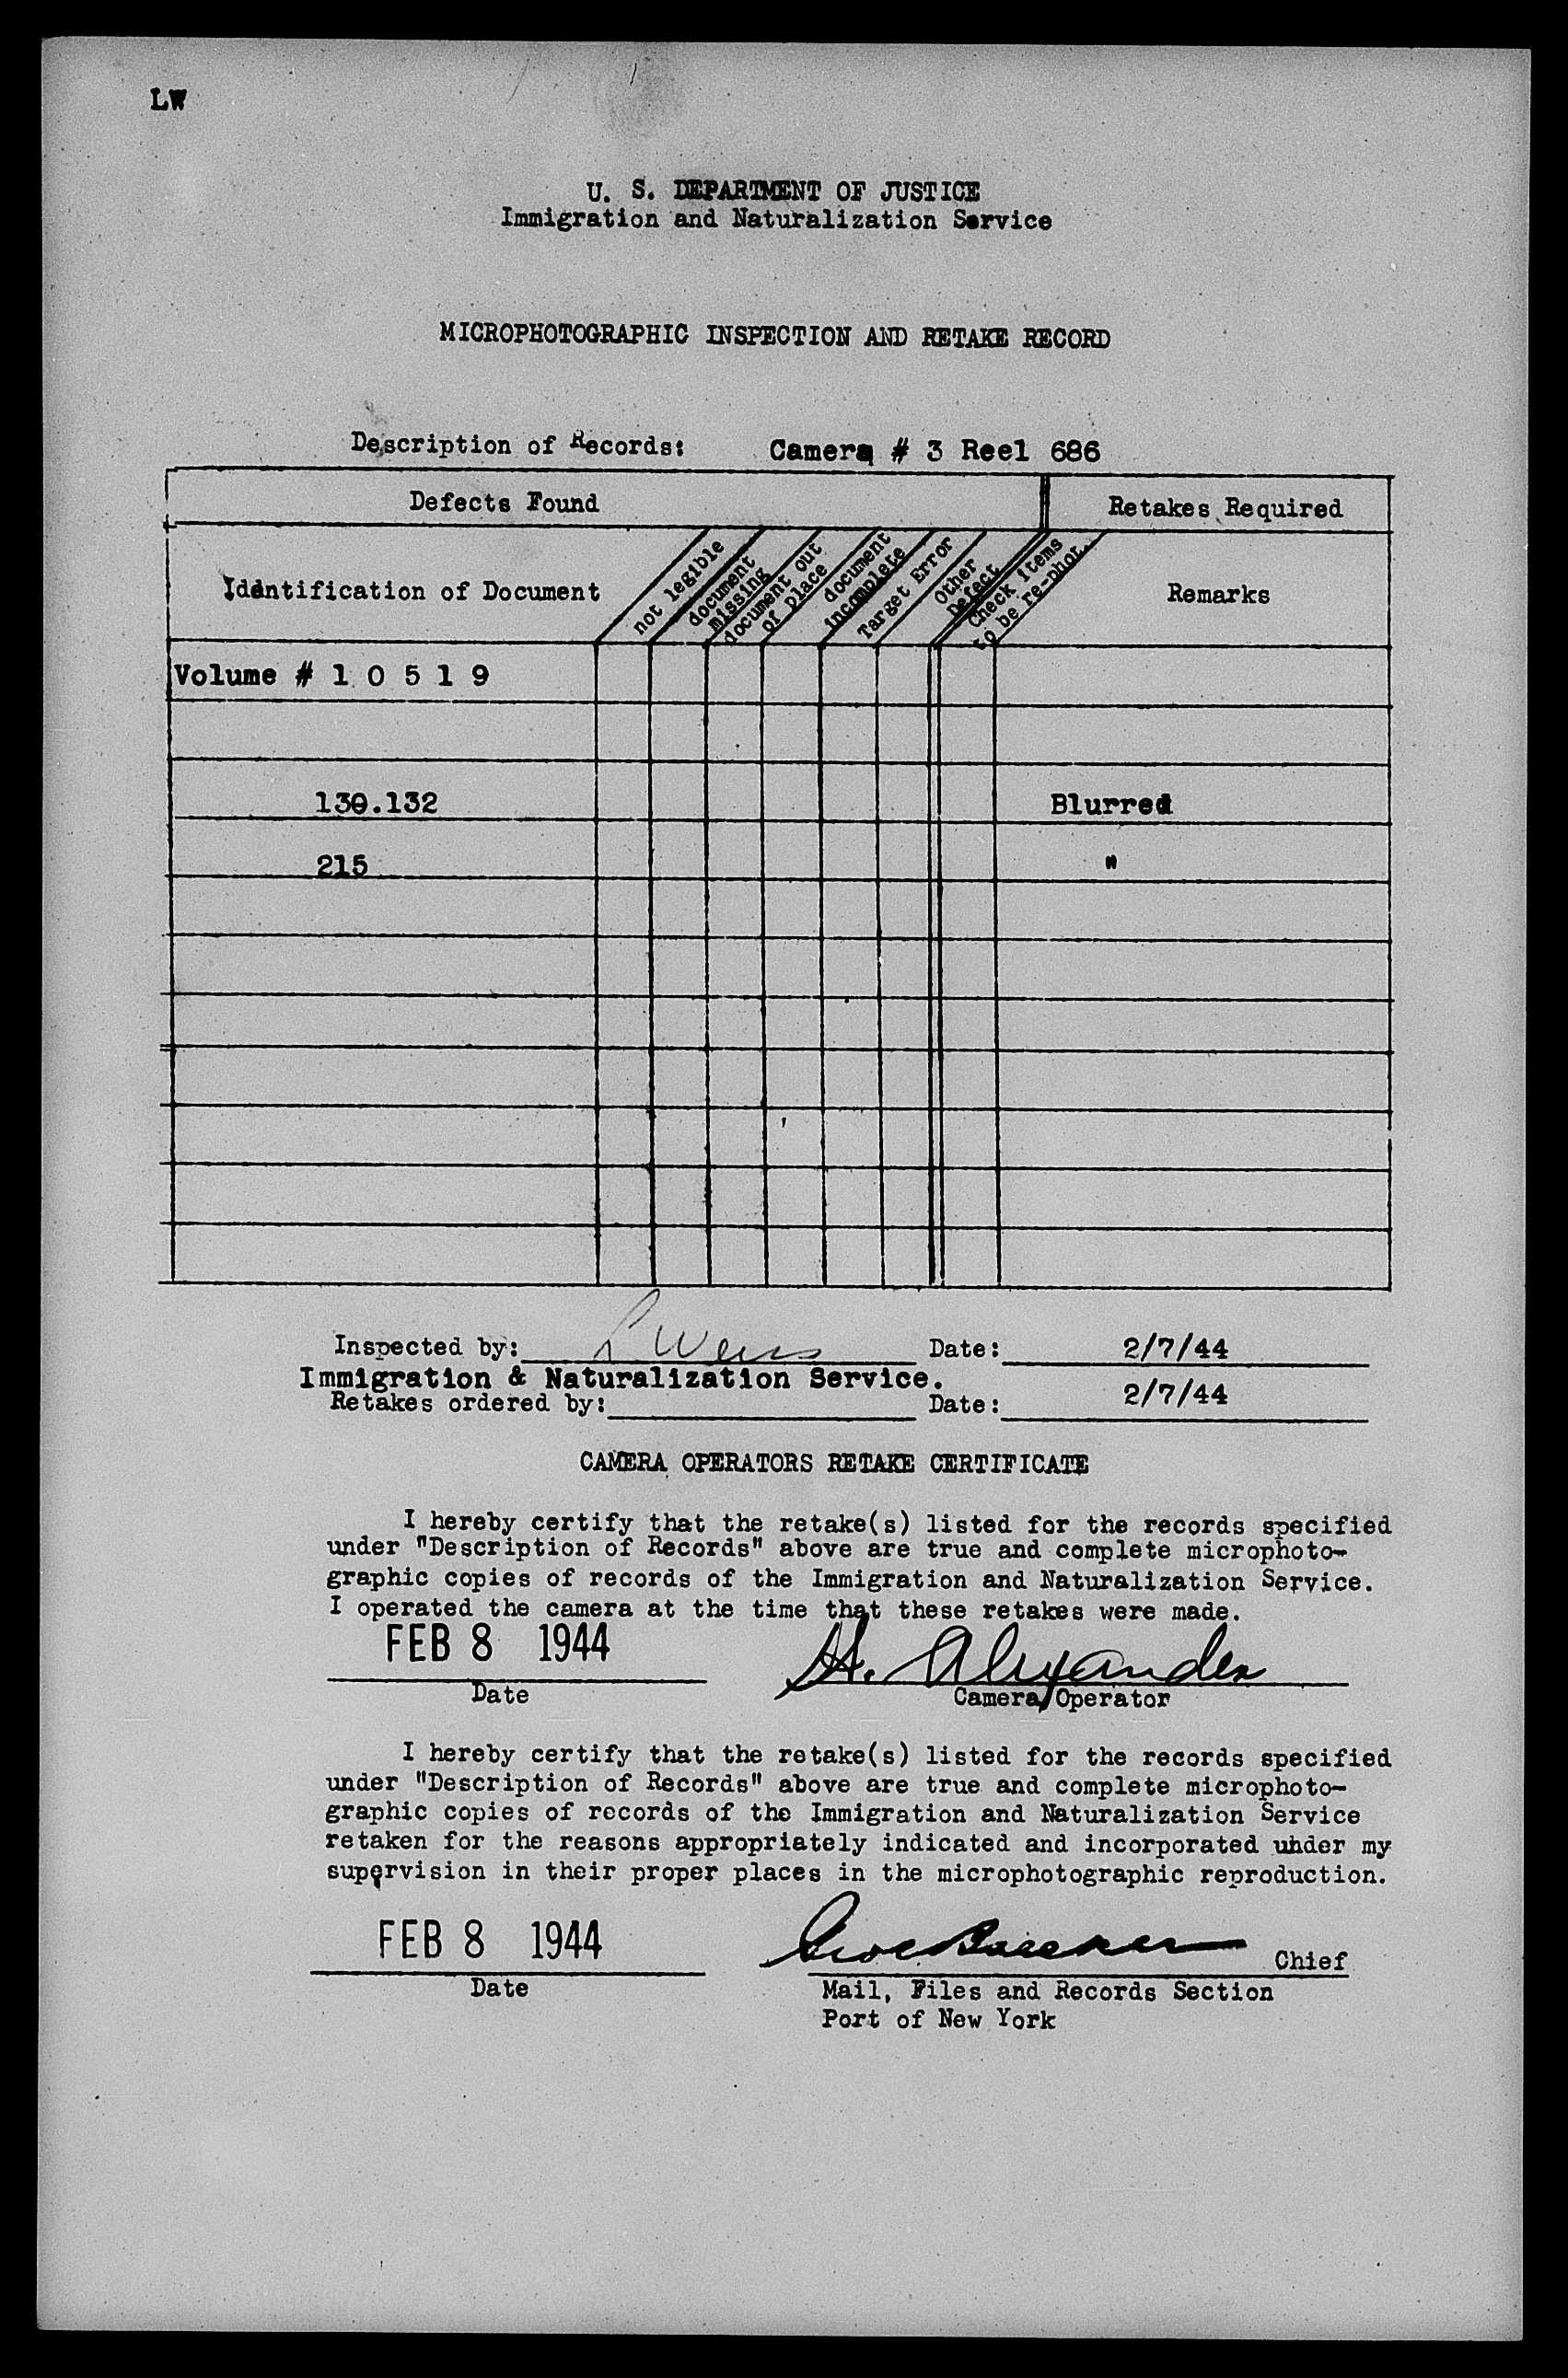 LW
U. S. DEPARTMENT OF JUSTICE
Immigration and Naturalization Service
MICROPHOTOGRAPHIC INSPECTION AND RETAKE RECORD
Description of Records: Camera # 3 Reel 686
Defects Found Retakes Required
Identification of Document not legible document missing document out of place document incomplete Target Error Other Defect Check items to be re-phot. Remarks
Volume # 1 0 5 1 9
130.132 Blurred
215 "
Inspected by: L Weiss Date: 2/7/44
Immigration & Naturalization Service.
Retakes ordered by: Date: 2/7/44
CAMERA OPERATORS RETAKE CERTIFICATE
I hereby certify that the retake(s) listed for the records specified
under "Description of Records" above are true and complete microphoto-
graphic copies of records of the Immigration and Naturalization Service.
I operated the camera at the time that these retakes were made.
FEB 8 1944 H. Alexander
Date Camera Operator
I hereby certify that the retake(s) listed for the records specified
under "Description of Records" above are true and complete microphoto-
graphic copies of records of the Immigration and Naturalization Service
retaken for the reasons appropriately indicated and incorporated under my
supervision in their proper places in the microphotographic reproduction.
FEB 8 1944 Chief
Date Mail, Files and Records Section
Port of New York